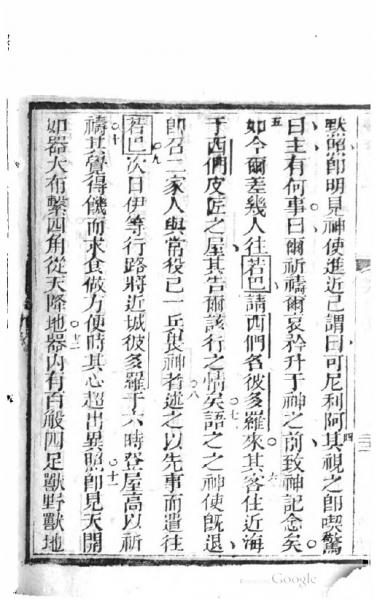 默照卽明見神使進近己謂曰可尼利阿其視之卽喫驚
曰主有何事曰爾祈禱爾哀矜升于神之前致神記念矣
如今爾差幾人往若巴請西們名彼多羅來其客住近海
于西們皮匠之屋其告爾該行之情矣語之之神使旣退
卽召二家人與常役己一兵畏神者述之以先事而遣往
若巴次日伊等行路將近城彼多羅于六時登屋高以祈
禱其覺得饑而求食做方便時其心超出異照卽見天開
如器大布繫四角從天降地器內有百般四足獸野獸地
四
五
六
七
八
九
十
十一
十二
Google